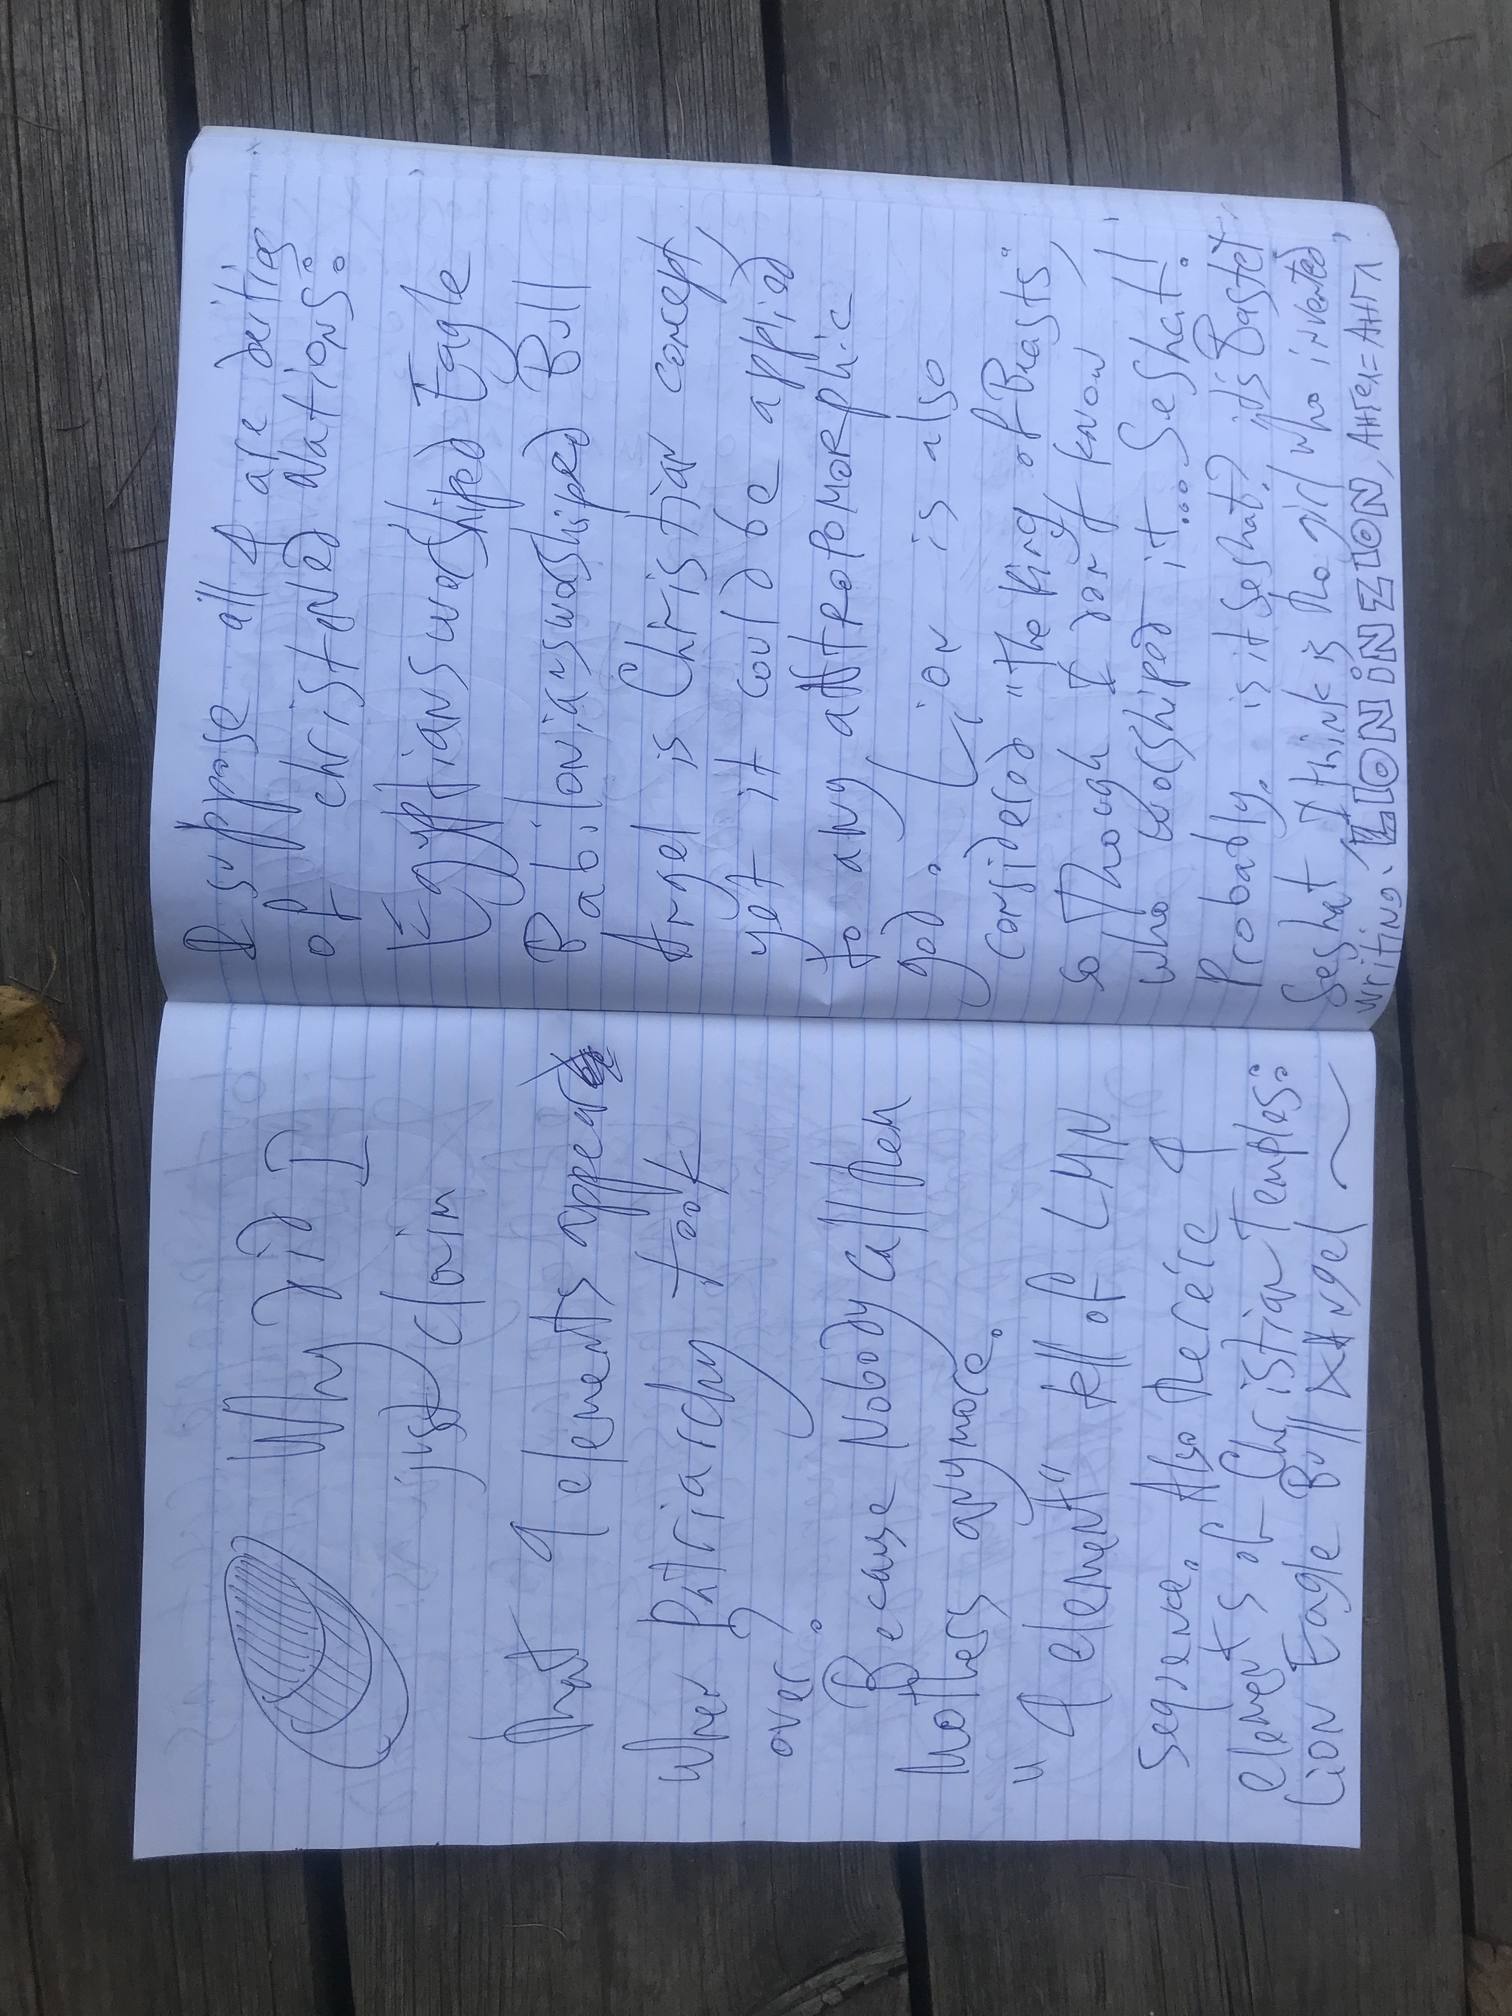 Why did I
just claim
that 4 elements appear
when Patriarchy took
over?
Because Nobody call them
Mothers anymore.
"4 element" tell of LMN
seqsence. Also there're 4
elements of Christian Temples:
Lion Eagle Bull Angel
I suppose all 4 are deities
of christened Nations:
Egyptians worshiped Eagle
Babilonians worshiped Bull
Angel is Christian concept,
yet it could be applied
to any antropomorphic
god. Lion is also
considered "the king of Beasts"
so Though I don't know,
who worshiped it... Seshat!
Probably. is it Seshat? it's Bastet
Seshat I think is the girl who invented
writing. LION iN ZION, АНГел=АНГЛ